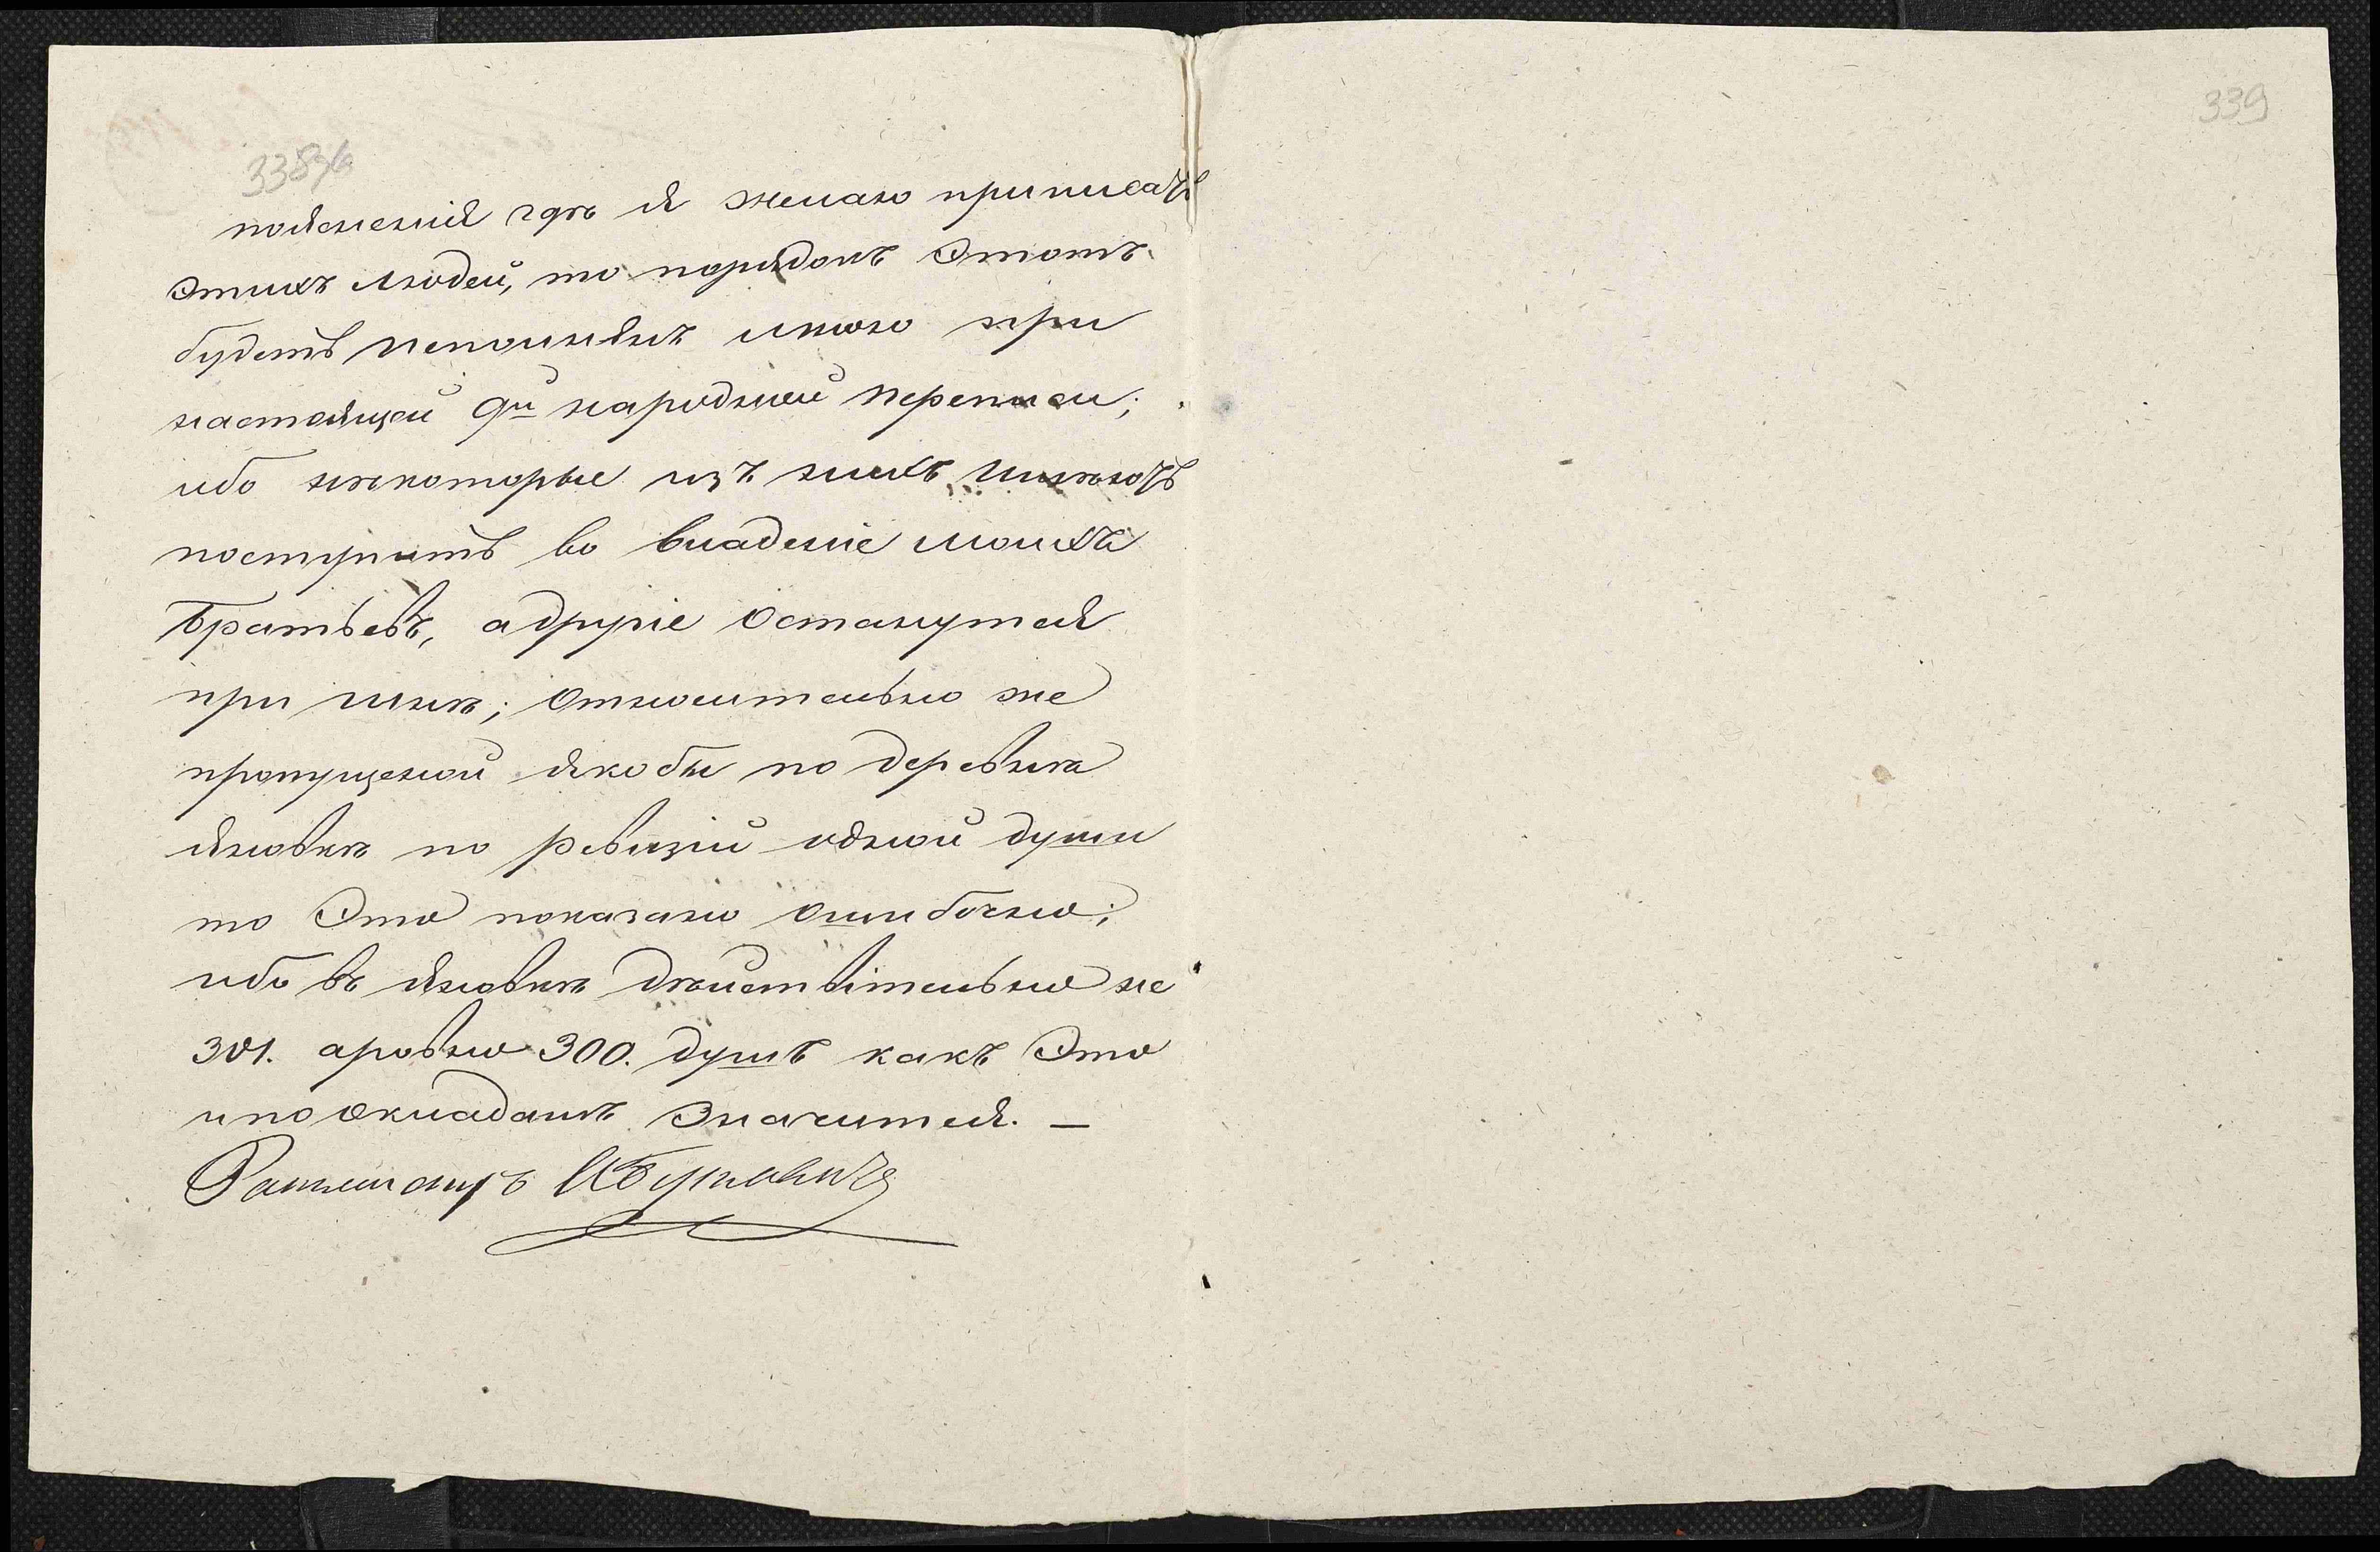 339
338 об
пояснения гдѣ я желаю приписать
этихъ людей, то порядокъ Этотъ
будетъ исполненъ мною при
настоящей 9й народной переписи;
ибо нѣкоторые изъ нихъ имѣютъ
поступить во владеніе моихъ
Братьевъ, адругіе Останутся
при мнѣ; Относительно же
пропущеной якобы по деревнѣ
Яновкѣ по Ревизіи одной души
то Это показано Ошибочно;
ибо въ Яновкѣ Дѣйствительно не
301. аровно 300. душъ какъ Это
ипо Окладамъ Значится. —
Ротмистръ